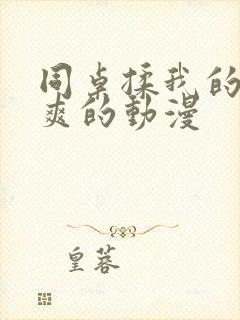 同桌揉我的
爽的動漫
皇蓉